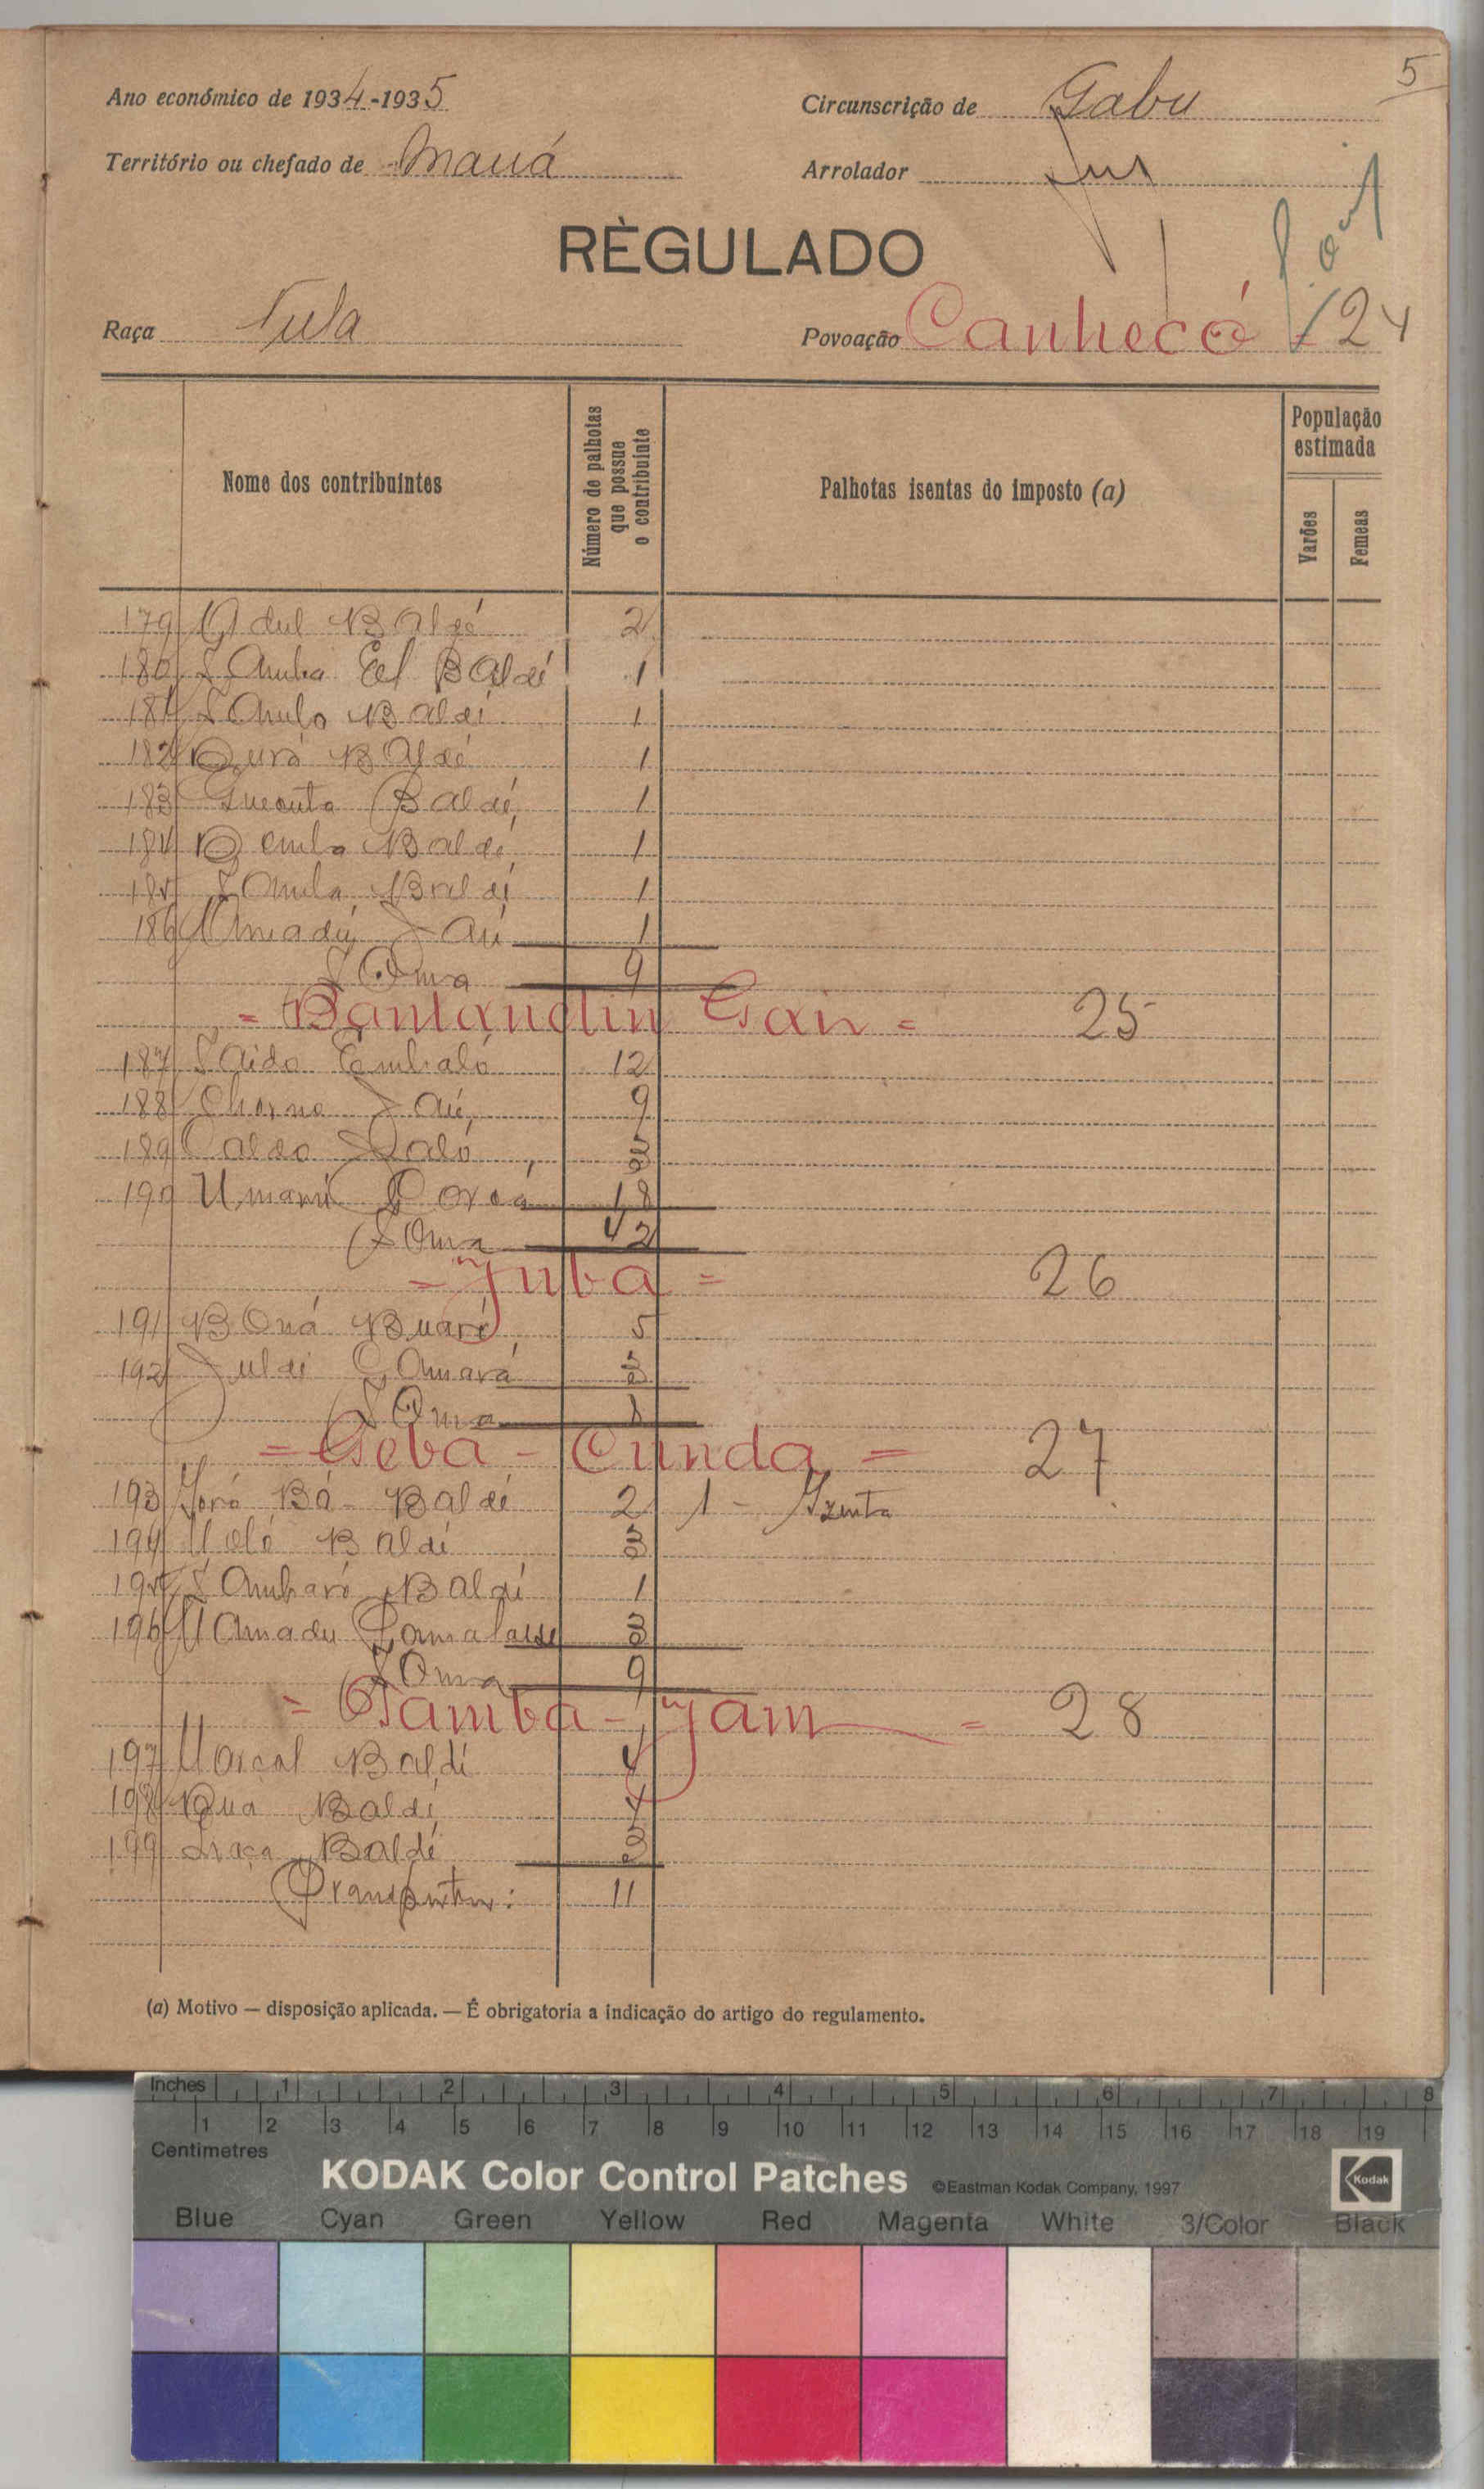 5
Ano económico de 1934-1935
Circunscrição de Gabu
Território ou chefado de Maná
Arrolador
RÈGULADO
Raça Fula
Povoação Canhecó - 24
Nome dos contribuintes
Número de palhotas que possue o contribuinte
Palhotas isentas do imposto (a)
População estimada
Varões
Femeas
179 Adul Baldé 2
180 Samba Eel Baldé 1
181 Sambo Baldé 1
182 Durô Baldé 1
183 Baldé 1
184 Demba Baldé 1
185 Samba Baldé 1
186 Amadú Jaú 1
Soma 9
= Bantandim Gain = 25
187 Saido Embaló 12
188 Cherno Jaú 9
189 Jaló 3
190 Umarú 18
Soma 42
= Juba = 26
191 Boná Buaré 5
192 Juldi Camará 3
Soma 8
= Geba - Cunda = 27
193 Ioró Bá Baldé 2 1 - Izenta
194 Baldé 3
195 Sambaró Baldé 1
196 Mamadu 3
Soma 9
= Tamba - Jam = 28
197 Baldé 4
198 Buá Baldé 4
199 Baldé 3
Transporta: 11
(a) Motivo — disposição aplicada. — É obrigatoria a indicação do artigo do regulamento.
Inches 1 2 3 4 5 6 7 8
1 2 3 4 5 6 7 8 9 10 11 12 13 14 15 16 17 18 19
Centimetres
KODAK Color Control Patches ©Eastman Kodak Company, 1997 Kodak
Blue Cyan Green Yellow Red Magenta White 3/Color Black